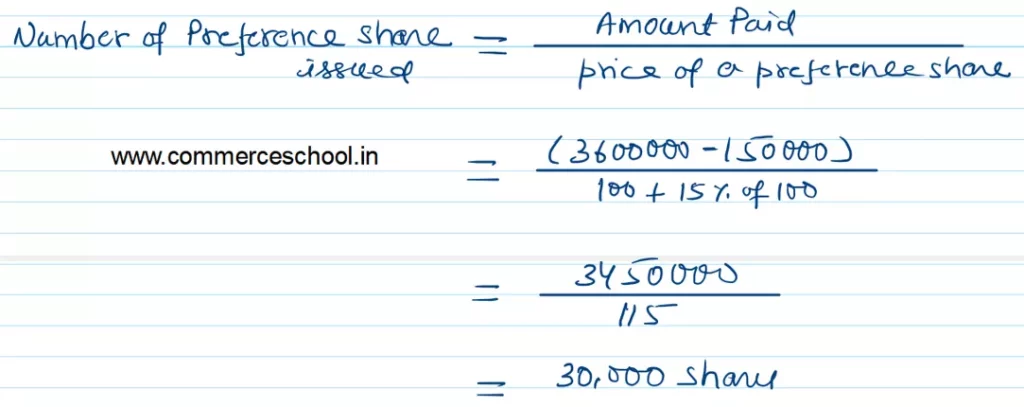 Number of Preference share issued = Amount Paid / price of a preference share
www.commerceschool.in
= (3600000 - 150000) / 100 + 15% of 100
= 3450000 / 115
= 30,000 share